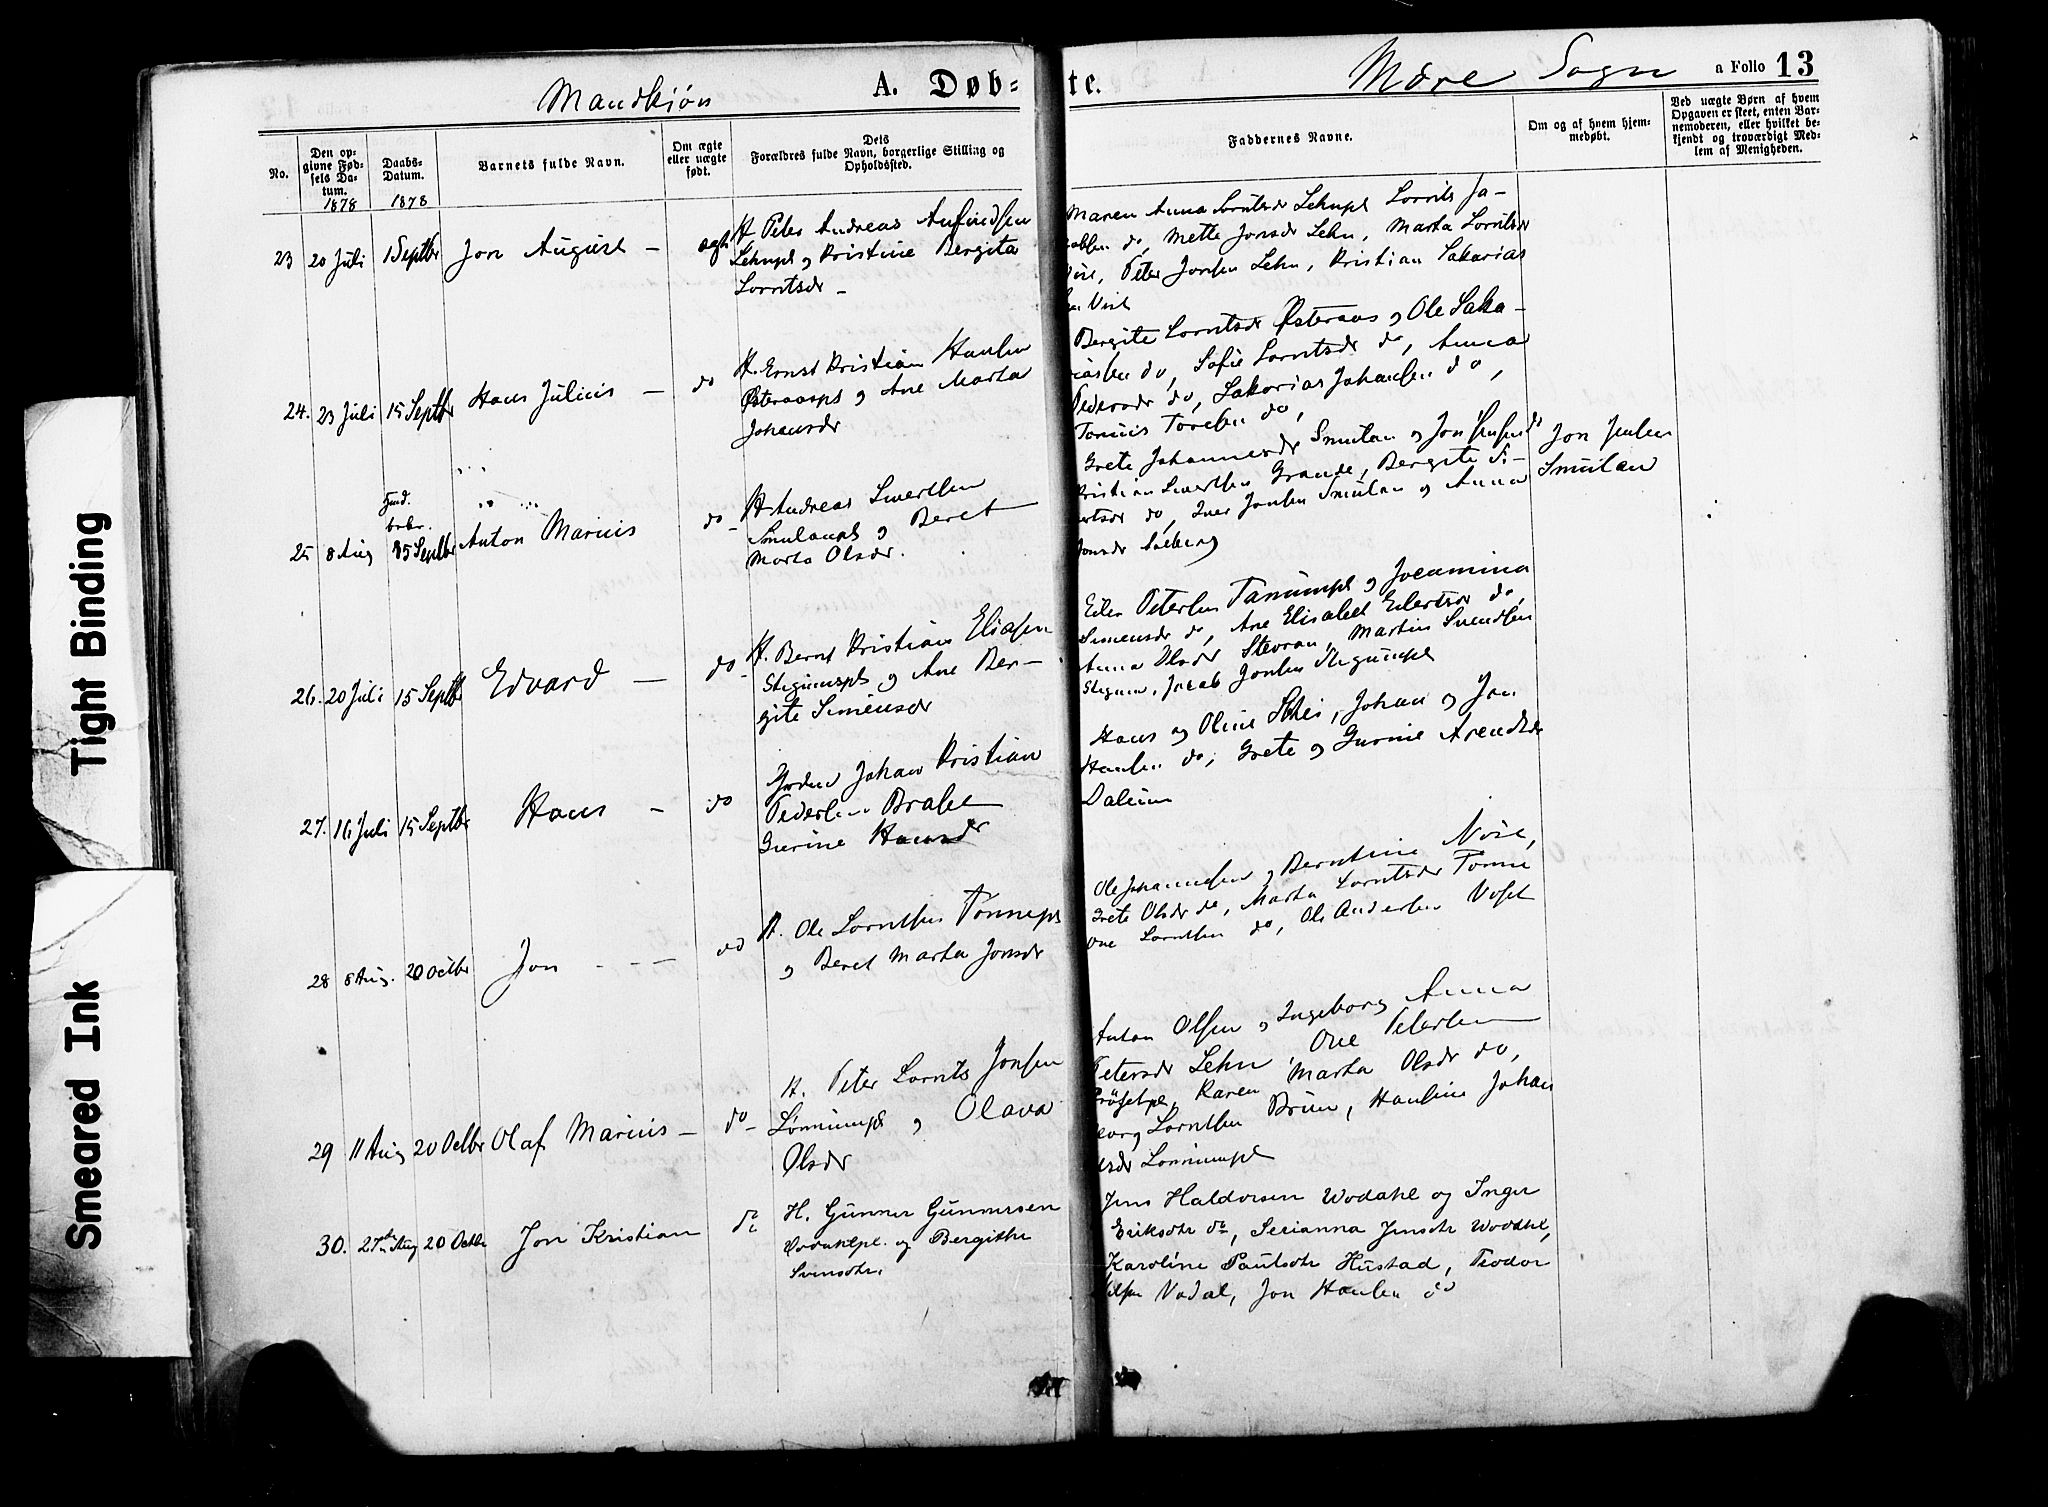 Mandkjøn
A. Døb=
te.
Mære Sogn
a Folio 13
No.
Den op-
givne Fød-
sels Da-
tum.
1878
Daabs-
Datum.
1878
Barnets fulde Navn.
Om ægte
eller uægte
født.
Dets
Forældres fulde Navn, borgerlige Stilling og
Opholdssted.
Faddernes Navne.
Om og af hvem hjem-
medøbt.
Ved uægte Børn af hvem
Opgaven er skeet, enten Bar-
nemoderen, eller hvilket be-
kjendt og troværdigt Med-
lem af Menigheden.
23 20 Juli 1 Septbr Jon August — ægte
H Peter Andreas Anfindsen
Lehnpl og Kristine Bergita
Lorntsdr —
Maren Anna Lorntsdr Lehnpl Lornts Ja-
do, Mette Jonsdr Lehn, Marta Lorntsdr
Peter Jonsen Lehn, Kristian Sakarias
Vist
24. 23 Juli 15 Septbr Hans Julius — do
H. Ernst Kristian Hansen
Østeraaspl og Ane Marta
Johansdr
Bergite Lorntsdr Østeraas og Ole Saka-
riassen do, Sofie Lorntsdr do, Anna
Pedersdr do, Sakarias Johansen do,
Tonnis Toresen do,
25 8 Aug 15 Septbr Anton Marius do —
H Andreas Sivertsen
Smulanpl og Beret
Marta Olsdr.
Grete Johannesdr Smulan og Jon Jensen do
Kristian Sivertsen Grande, Bergite Si-
vertsdr do, Iver Jonsen Smulan og Anna
Jonsdr Solberg
Jon Jensen
Smulan
26. 20 Juli 15 Septbr Edvard — do —
H. Bernt Kristian Eliasen
Stegumspl og Ane Ber-
gite Simensdr
Petersen Tanumpl og Jocumina
Simensdr do, Ane Elisabet Eilertsdr do,
Anna Olsdr Stevran, Martin Svendsen
Stegum, Jacob Jonsen Stegumpl
27. 16 Juli 15 Septbr Hans — do
Johan Kristian
Pedersen Braset
Gurine Hansdr
Hans og Oline Schei, Johan og Jon
Hansen do, Grete og Gurine Arendtsdr
Dalum
28 8 Aug. 20 Octbr Jon - - - do
H. Ole Lorntsen Tonnepl
og Beret Marta Jonsdr
Ole Johannesen og Berntine Nøst,
Grete Olsdr do, Marta Lorntsdr Tonne
Ove Lorntsen do, Ole Andersen Voset
29 11 Aug 20 Octbr Olaf Marius — do —
H. Peter Lornts Jonsen
Lønnumpl og Olava
Olsdr
Anton Olsen og Ingeborg Anna
Petersdr Lehn, Ove Petersen
Røsetpl, Karen Marta Olsdr do,
Georg Lorntsen Bruem, Hansine Johan
esdr Lønnumpl
30. 27de Aug 20 Octbr Jon Kristian do
H. Gunner Gunnersen
Wodahlpl. og Bergithe
Svensdtr.
Jens Haldorsen Wodahl og Inger
Eriksdtr do, Serianna Jensdtr Wodahl,
Karoline Paulsdtr Hustad, Teodor
Vodal, Jon Hansen do
Tight Binding
Smeared Ink